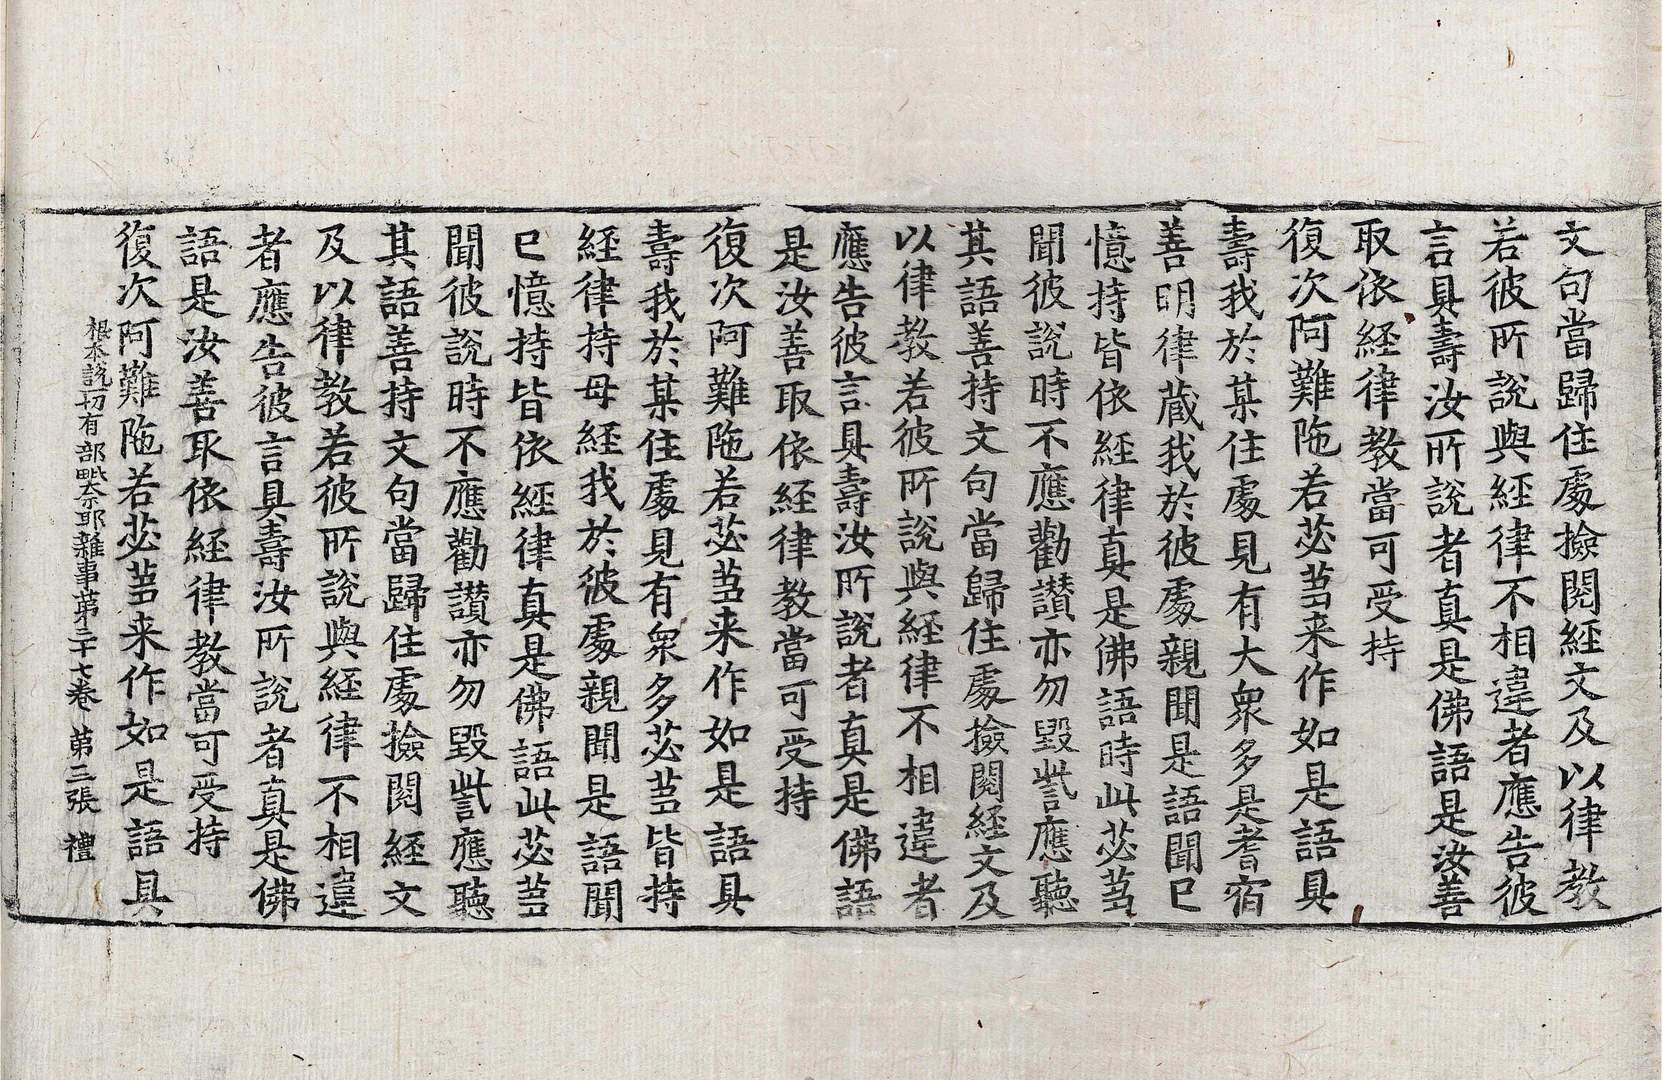 文句當歸住處撿閱經文及以律教
若彼所說與経律不相違者應告彼
言具壽汝所說者真是佛語是汝善
取依経律教當可受持
復次阿難陁若苾芻来作如是語具
壽我於某住處見有大衆多是耆宿
善明律蔵我於彼處親聞是語聞已
憶持皆依経律真是佛語時此苾芻
聞彼說時不應勸讃亦勿毀訾應聽
其語善持文句當歸住處撿閱経文及
以律教若彼所說與経律不相違者
應告彼言具壽汝所說者真是佛語
是汝善取依経律教當可受持
復次阿難陁若苾芻来作如是語具
壽我於某住處見有衆多苾芻皆持
経律持母経我於彼處親聞是語聞
已憶持皆依経律真是佛語此苾芻
聞彼說時不應勸讃亦勿毀訾應聽
其語善持文句當歸住處撿閱経文
及以律教若彼所說與経律不相違
者應告彼言具壽汝所說者真是佛
語是汝善取依経律教當可受持
復次阿難陁若苾芻来作如是語具
根本說一切有部毗奈耶雜事第三十七卷 第三張 禮